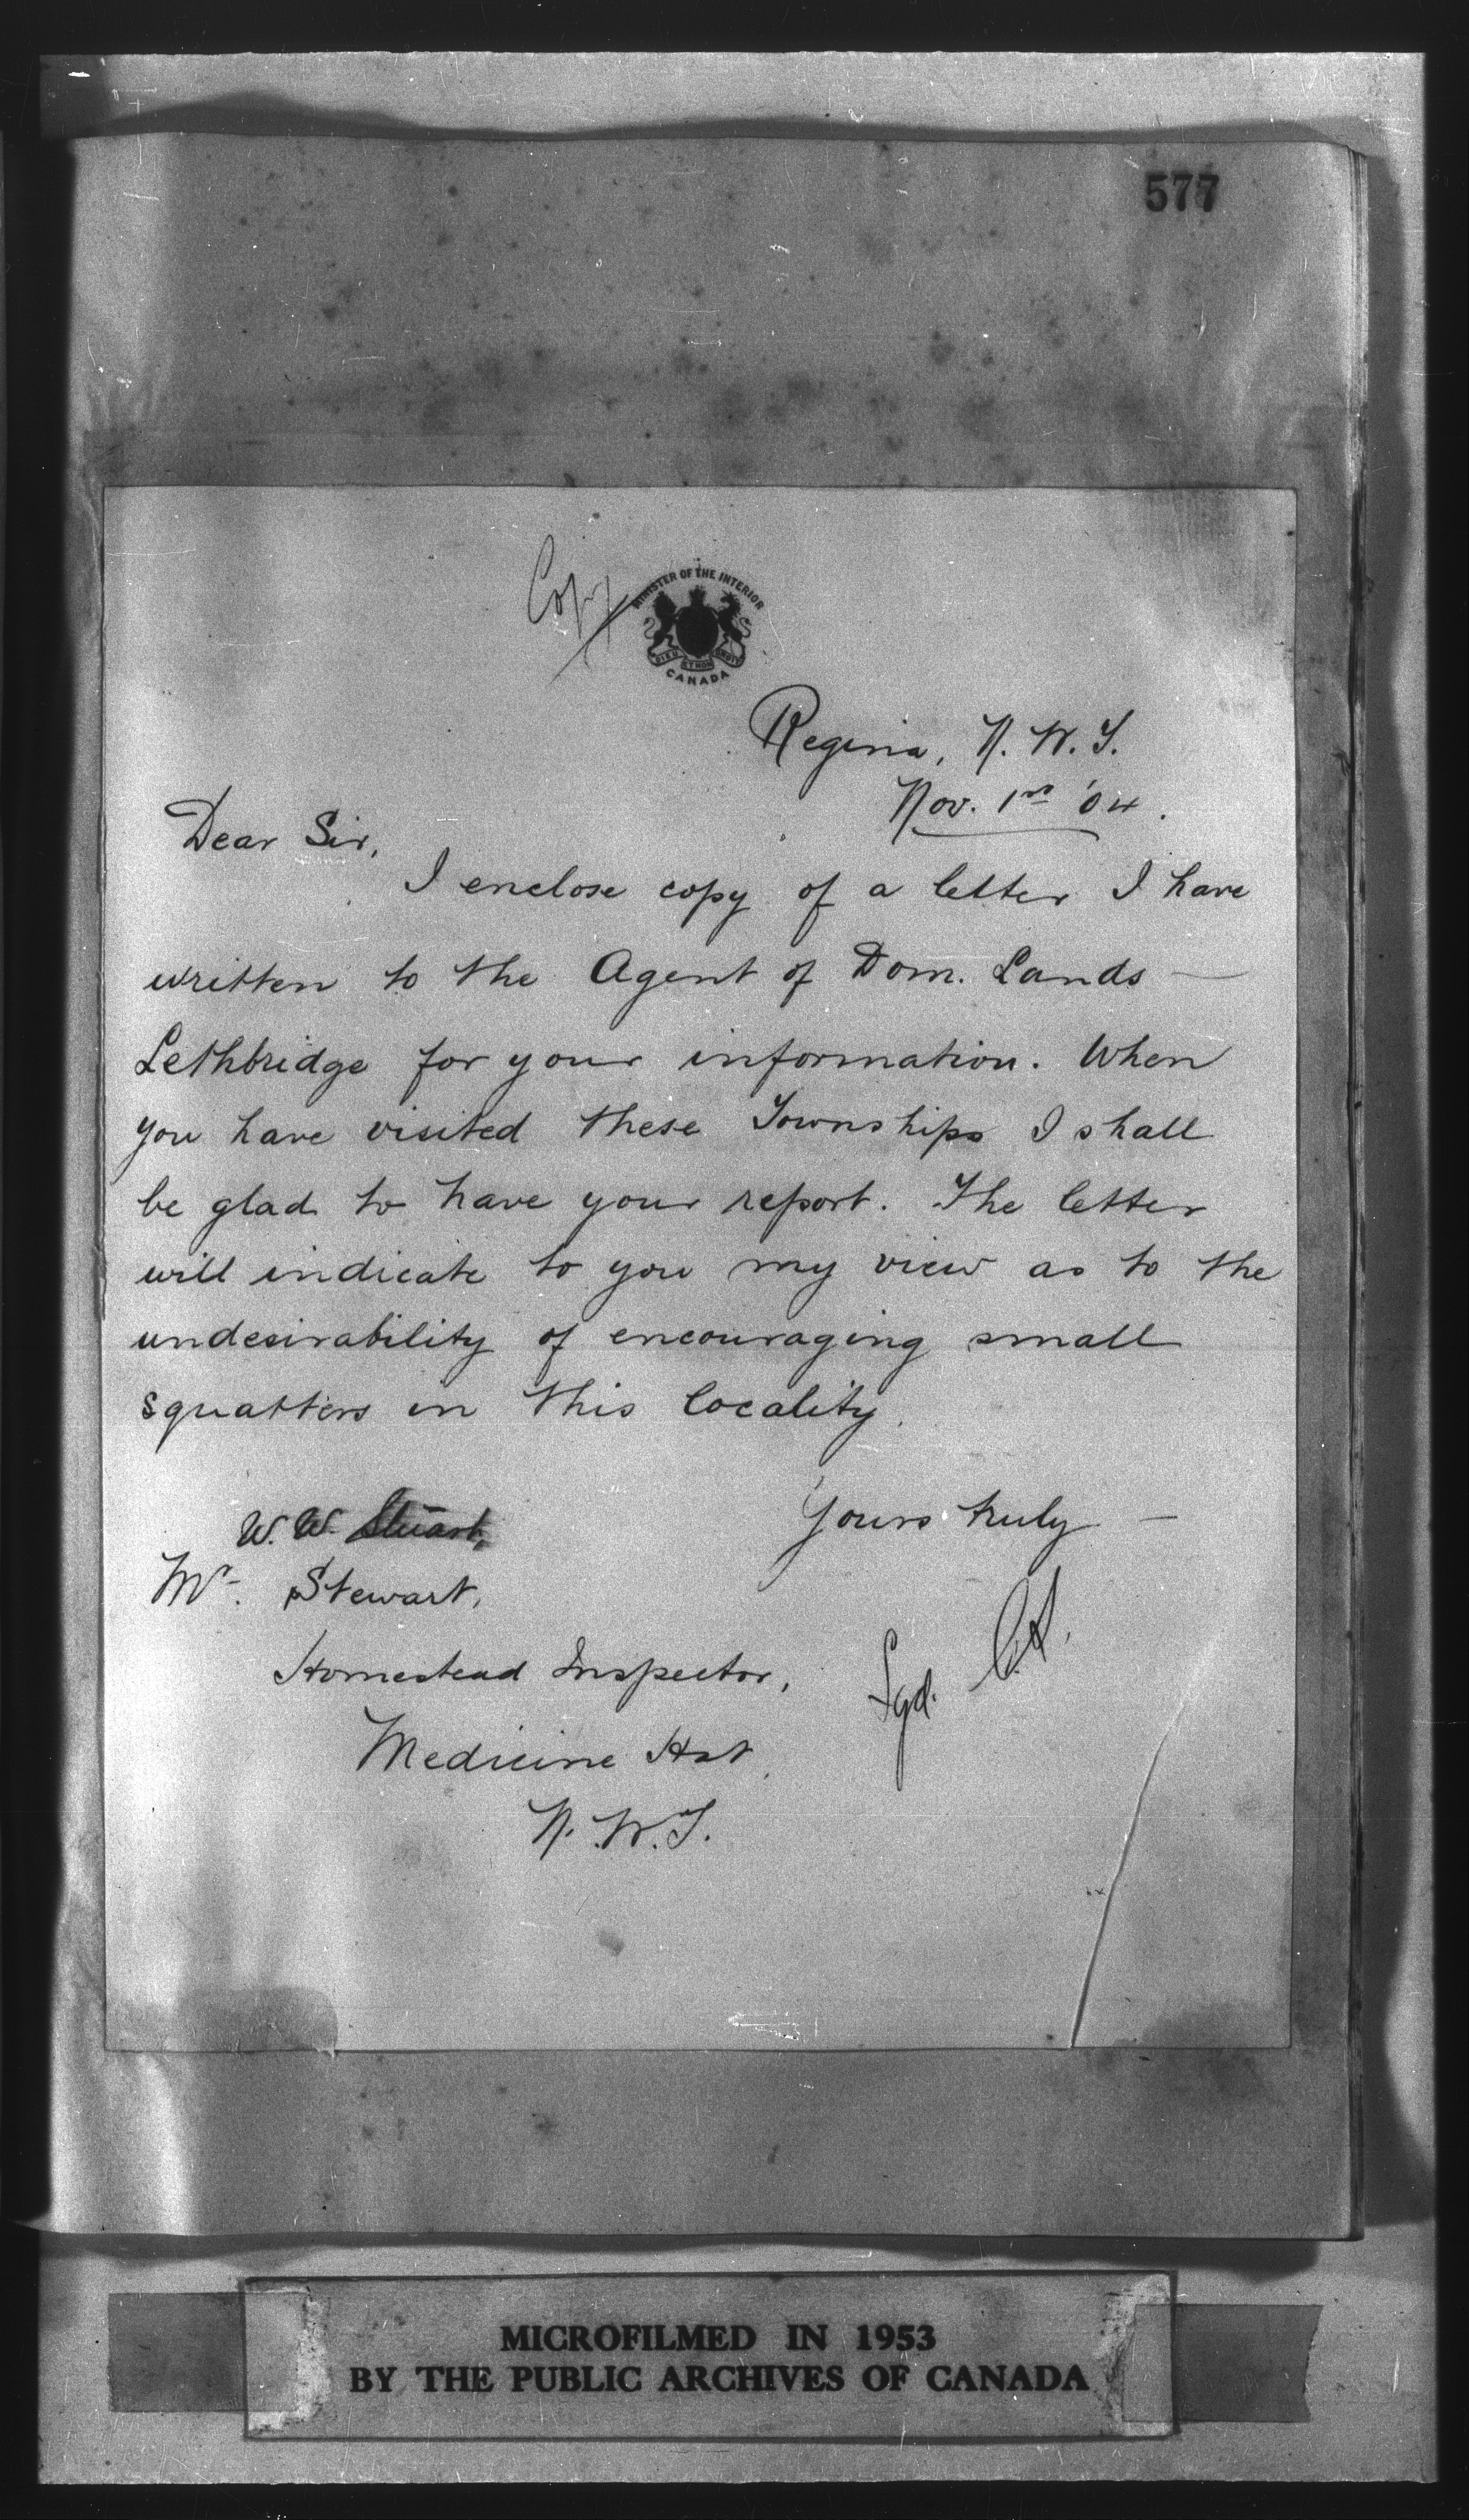 577
Copy
MINISTER OF THE INTERIOR
DIEU ET MON DROIT
CANADA
Regina, N. W. T.
Nov. 1st '04.
Dear Sir,
I enclose copy of a letter I have
written to the Agent of Dom. Lands —
Lethbridge for your information. When
you have visited these Townships I shall
be glad to have your report. The letter
will indicate to you my view as to the
undesirability of encouraging small
squatters in this locality.
Yours truly —
W. W. Stuart,
Mr. Stewart,
Sgd. C.S.
Homestead Inspector,
Medicine Hat,
N. W. T.
MICROFILMED IN 1953
BY THE PUBLIC ARCHIVES OF CANADA